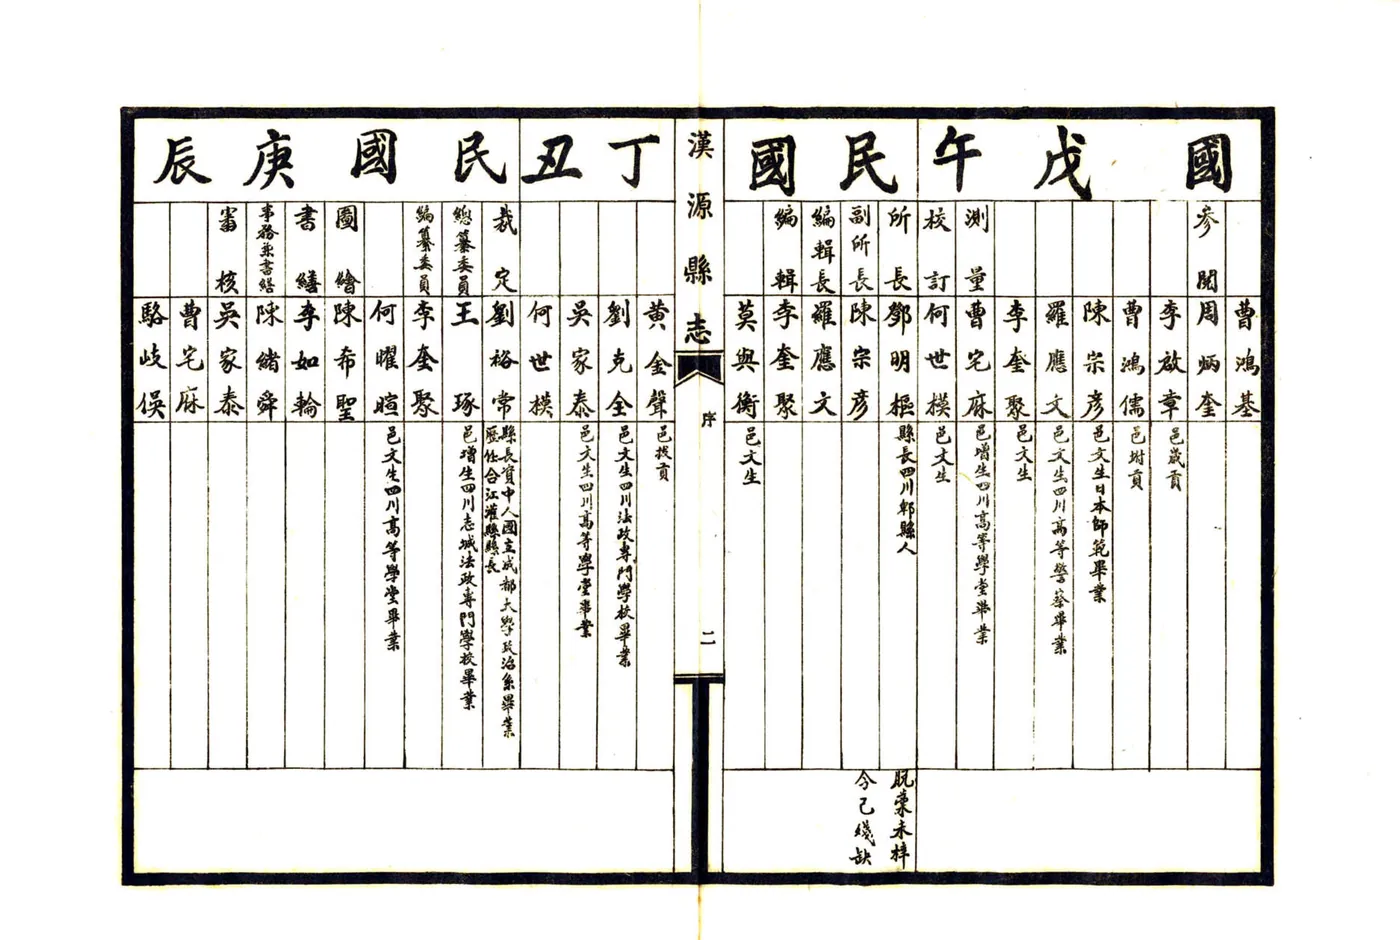 國戊午
曹鴻基
參閱
周炳奎
李啟章
邑歲貢
曹鴻儒
邑坿貢
陳宗彥
邑文生日本師範畢業
羅應文
邑文生四川高等警察畢業
李奎聚
邑文生
測量
曹宅庥
邑增生四川高等學堂畢業
校訂
何世模
邑文生
民國
所長
鄧明樞
縣長四川郫縣人
副所長
陳宗彥
編輯長
羅應文
編輯
李奎聚
莫與衡
邑文生
脫稾未梓
今已殘缺
漢源縣志
序
二
丁丑
黃金聲
邑拔貢
劉克全
邑文生四川法政專門學校畢業
吳家泰
邑文生四川高等學堂畢業
何世模
民國庚辰
裁定
劉裕常
縣長資中人國立成都大學政治系畢業
歷任合江灌縣縣長
總纂委員
王琢
邑增生四川志城法政專門學校畢業
編纂委員
李奎聚
何曜暄
邑文生四川高等學堂畢業
圖繪
陳希聖
書繕
李如輪
事務兼書繕
陳緒舜
審核
吳家泰
曹宅庥
駱岐俁